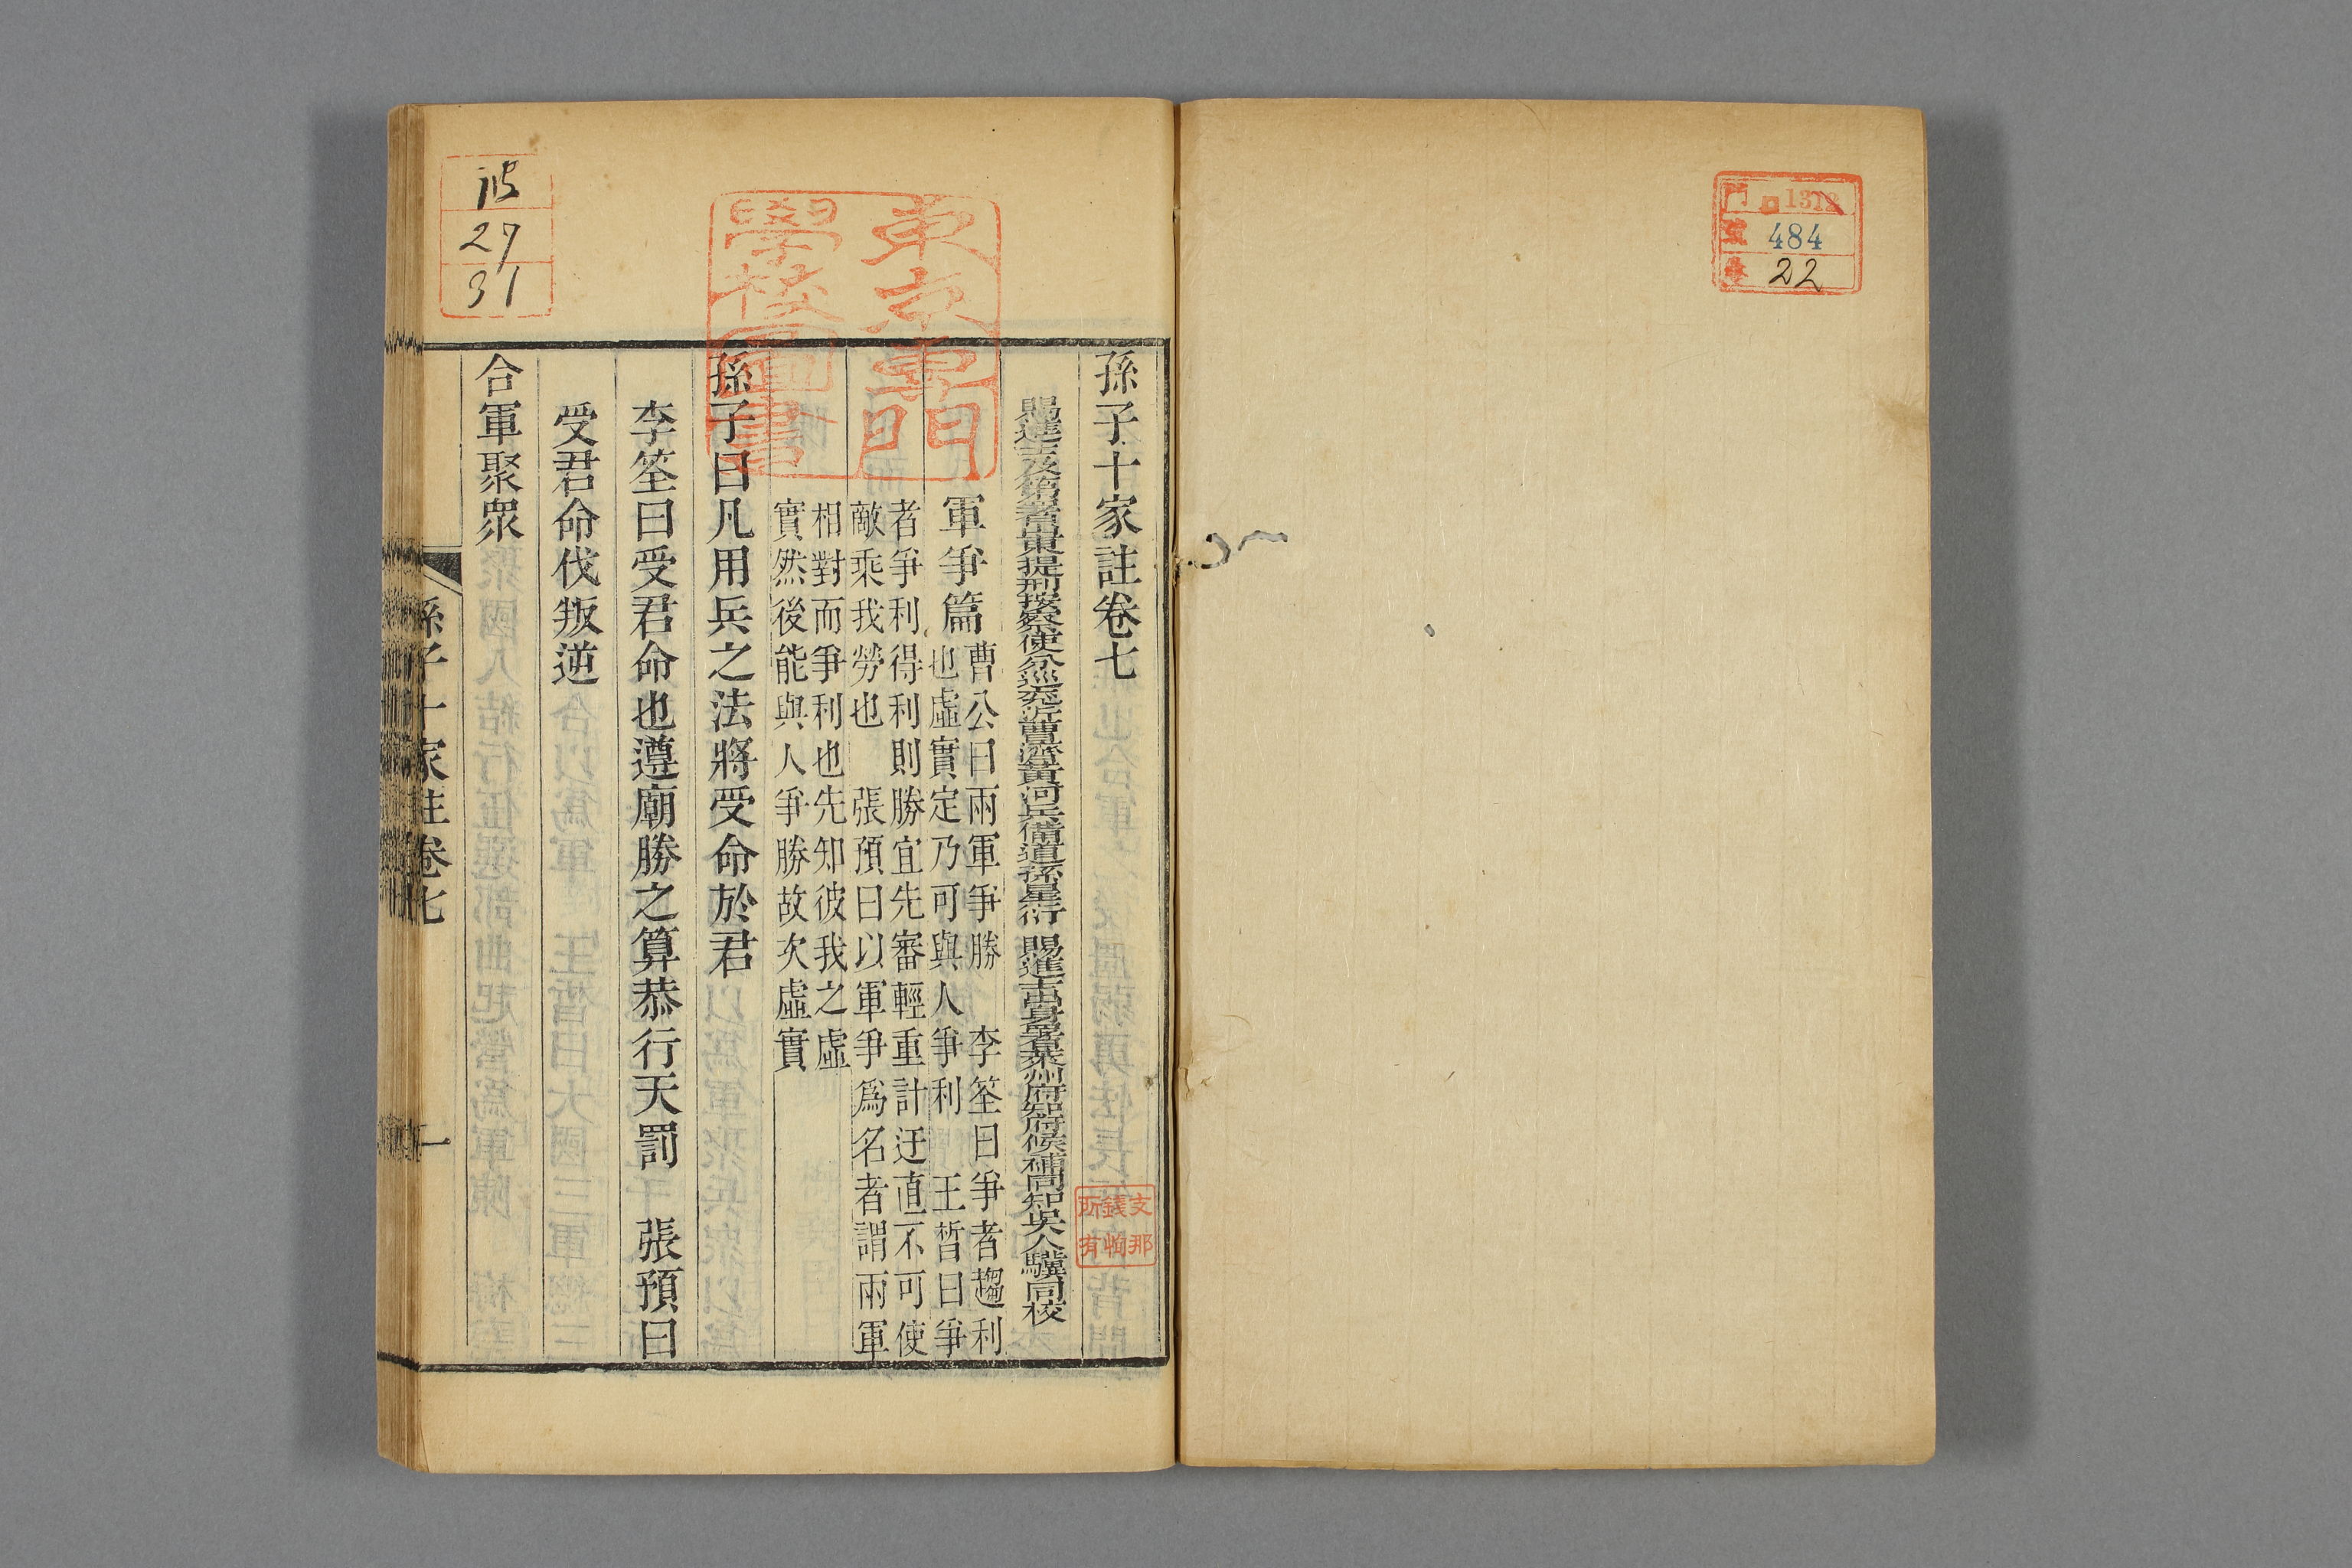 484
22
孫子十家註卷七
賜進士及第署山東提刑按察使分巡兗沂曹濟黃河兵備道孫星衍 賜進士出身署萊州府知府候補同知吳人驥同校
軍爭篇
曹公曰兩軍爭勝 李筌曰爭者趨利
也虛實定乃可與人爭利 王晳曰爭
者爭利得利則勝宜先審輕重計迂直不可使
敵乘我勞也 張預曰以軍爭爲名者謂兩軍
相對而爭利也先知彼我之虛
實然後能與人爭勝故次虛實
孫子曰凡用兵之法將受命於君
李筌曰受君命也遵廟勝之算恭行天罰 張預曰
受君命伐叛逆
合軍聚眾
孫子十家註卷七
一
東京專門
學校圖書
27
31